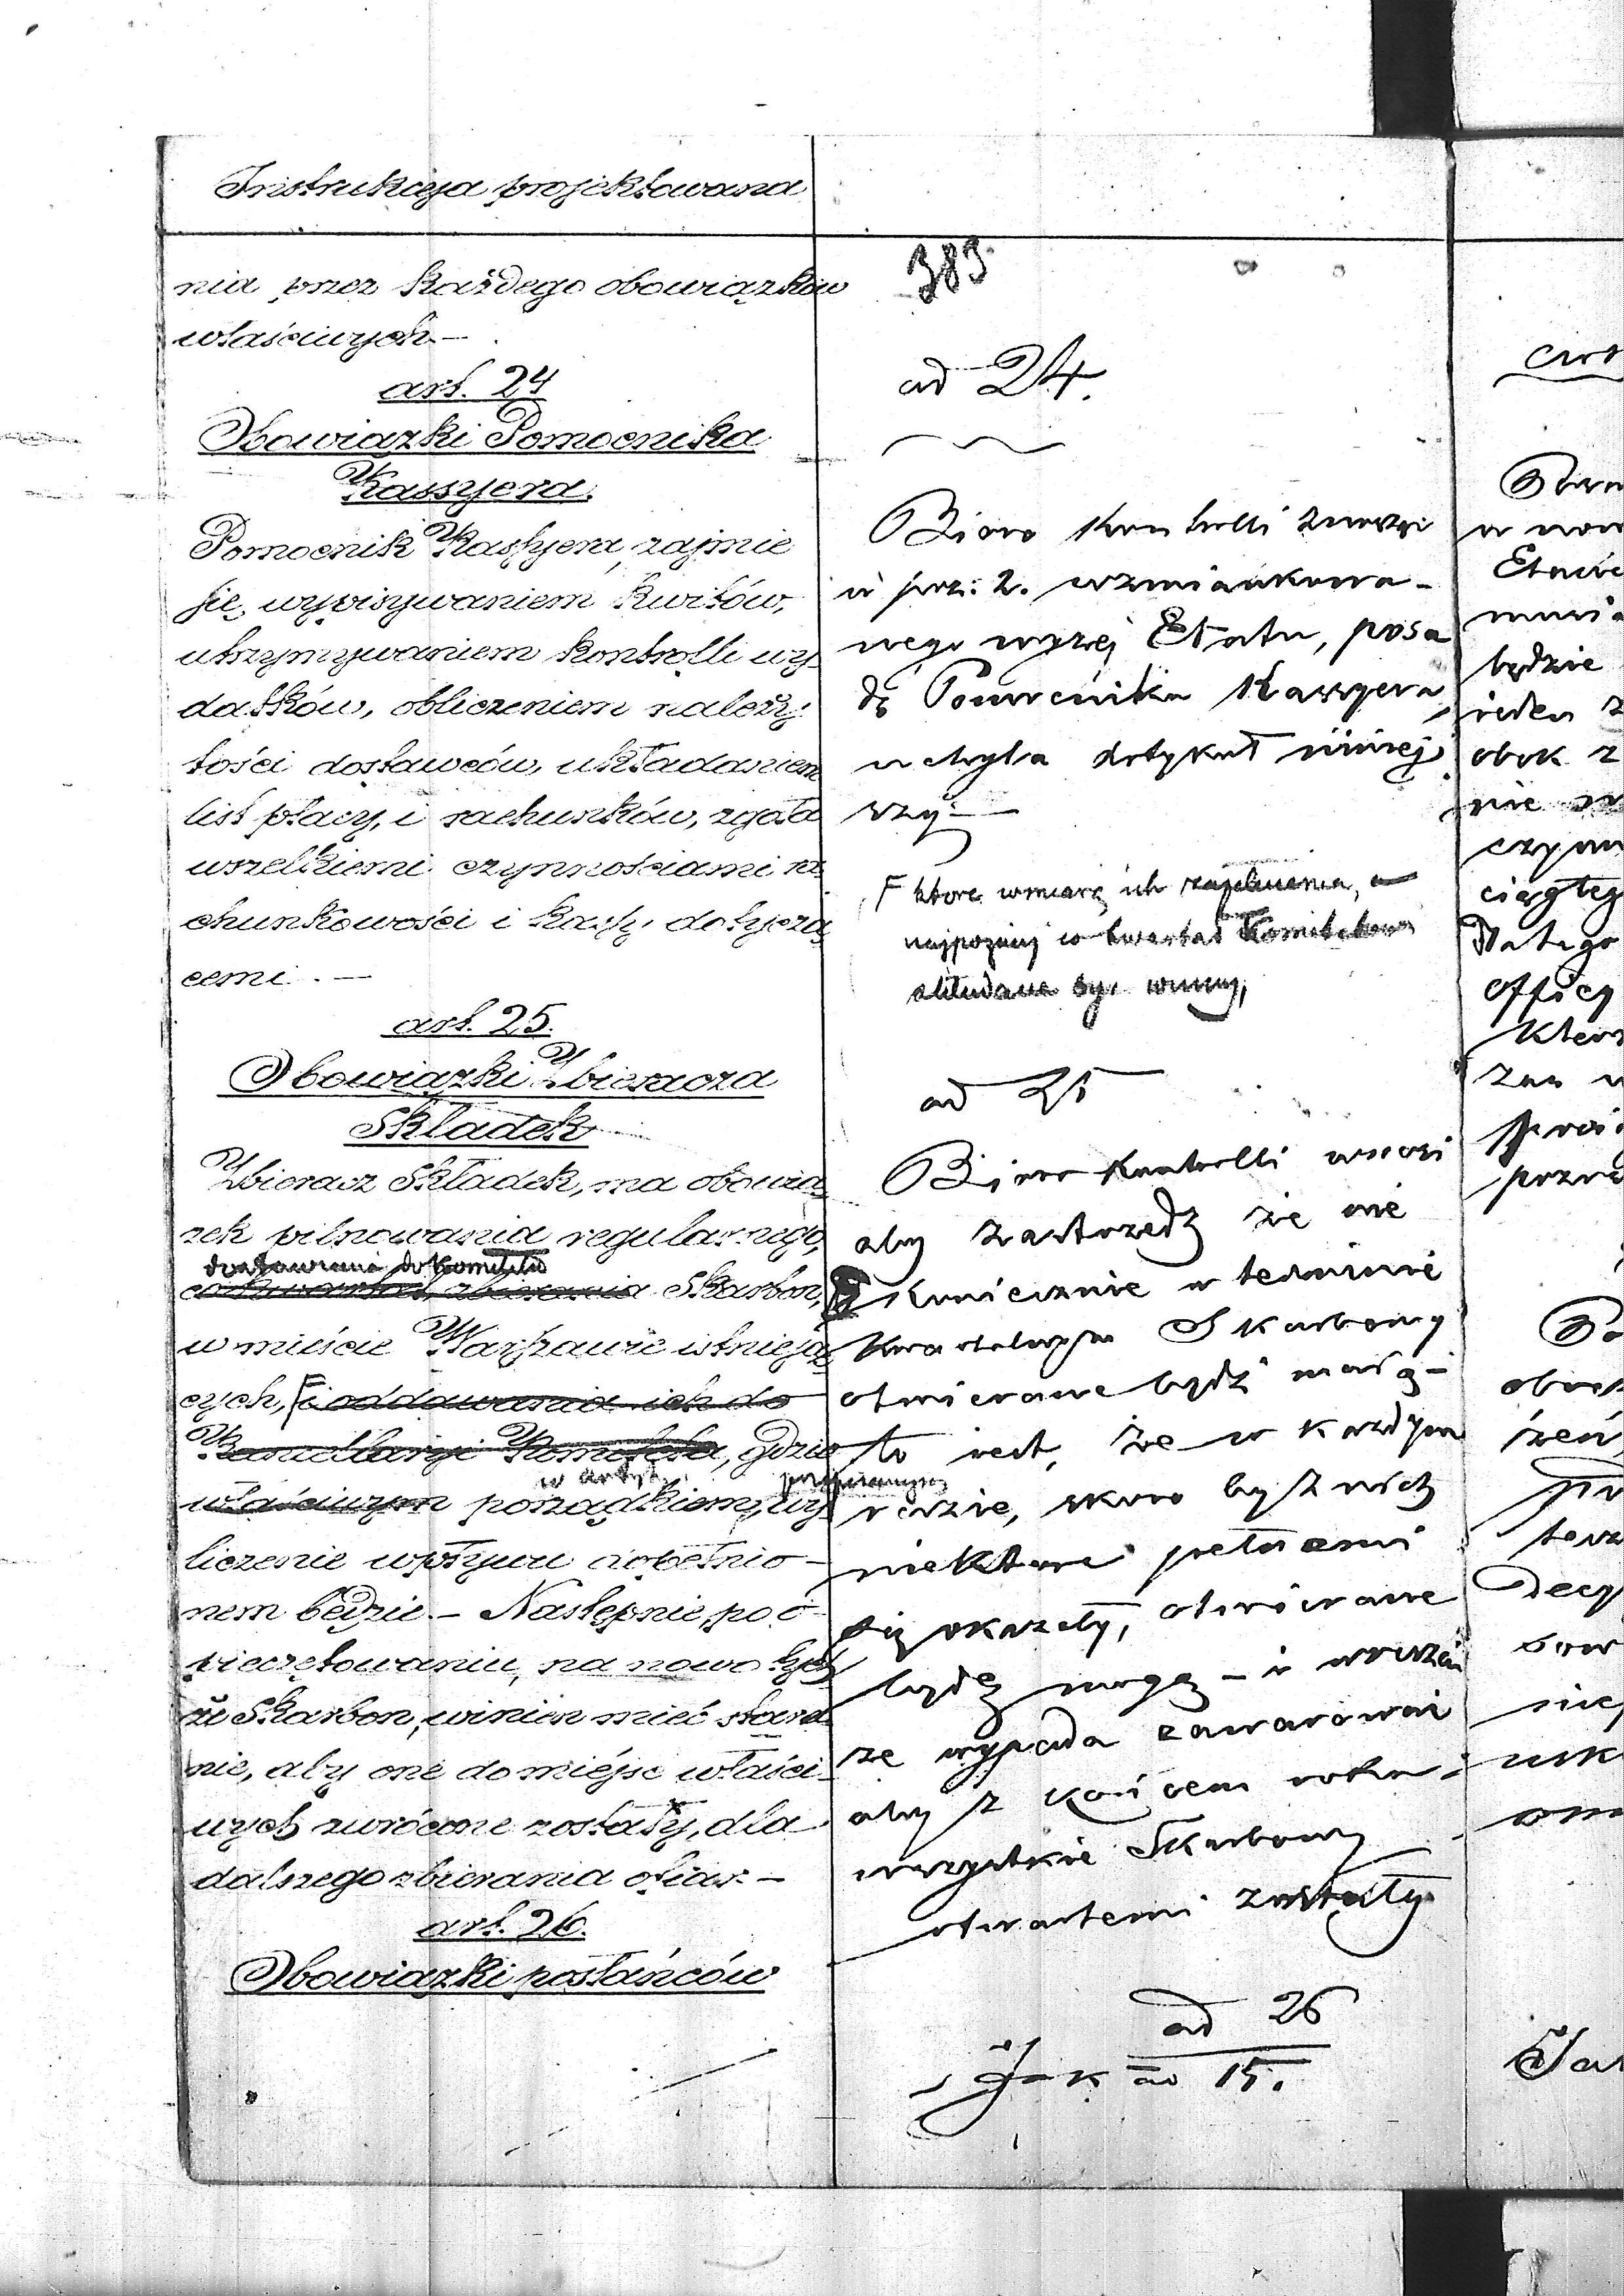 Instrukcya projektowana
nia przez każdego obowiązków
właściwych —
art. 24
Obowiązki Pomocnika
Kassyera.
Pomocnik Kassyera, zajmie
się, wypisywaniem kwitów,
utrzymywaniem kontrolli wy-
datków, obliczeniem należy-
tości dostawców, układaniem
list płacy, i rachunków, zgoła
wszelkiemi czynnościami ra-
chunkowości i kassy dotyczą-
cemi. —
art. 25.
Obowiązki Zbieracza
Składek
Zbieracz Składek, ma obowią-
zek pilnowania regularnego,
dostawiania do Komitetu
co kwartał, zbierania Skarbon,
w mieście Warszawie istnieją-
cych, F i oddawania ich do
Kancellaryi Komitetu, gdzie
w artyk. przepisanym
właściwym porządkiem, wy-
liczenie wpływu dopełnio-
nem będzie. — Następnie, po o-
pieczętowaniu, na nowo tych-
że Skarbon, winien mieć stara-
nie, aby one do miejsc właści-
wych zwrócone zostały, dla
dalszego zbierania ofiar —
art. 26.
Obowiązki posłańców
383
ad 24.
Bióro Kontrolli znosząc
w poz: 2. wzmiankowa-
nego wyżej Etatu, posa
dę Pomocnika Kassyera,
uchyla Artykuł niniej
szy —
F które w miarę ich zapełnienia, a
najpóźniej co kwartał Komitetowi
składane być winny,
ad 25
Bióro Kontrolli wnosi
aby zastrzedz że nie
koniecznie w terminie
kwartalnym Skarbony
otwierane bydź mają —
to jest, że w każdym
razie, skoro by z nich
niektóre pełnemi
się okazały, otwierane
bydź mogą — i wreszcie
że wypada zawarować
aby z końcem roku
wszystkie Skarbony
otwartemi zostały
ad 26
Jak ad 15.
będzie
jeden
obok
nie
Dlatego